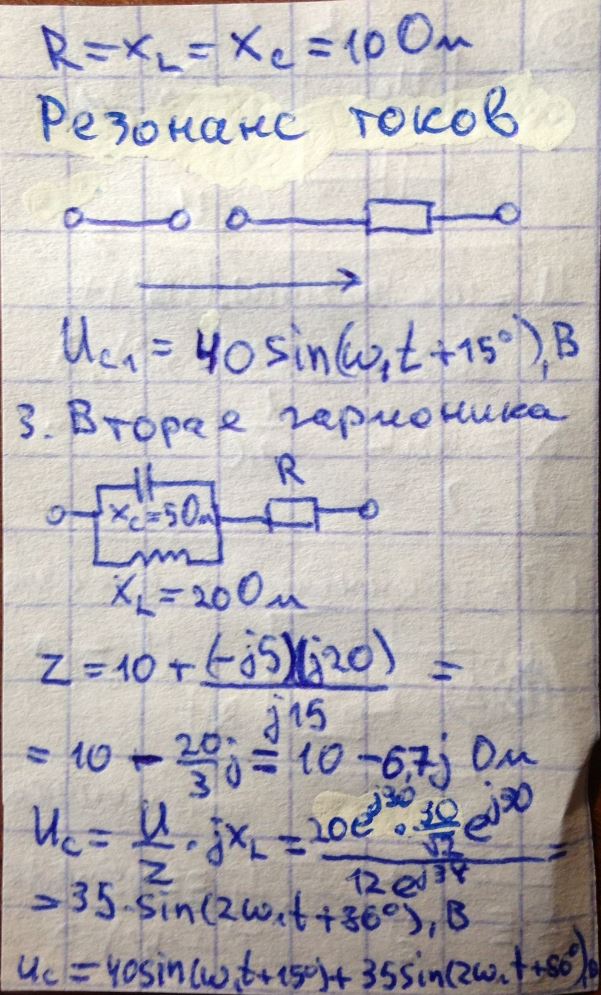 R = X_L = X_C = 10 Ом
Резонанс токов
U_C1 = 40 sin(ω₁t + 15°), В
3. Вторая гармоника
R
X_C = 5 Ом
X_L = 20 Ом
Z = 10 + (-j5)(j20) / j15 =
= 10 - 20/3 j = 10 - 6,7j Ом
U_C = U/Z · jX_L = 20e^{j30} · 30/√2 e^{j90} / 12e^{j34} =
= 35·sin(2ω₁t + 86°), В
u_C = 40sin(ω₁t + 15°) + 35sin(2ω₁t + 86°), В